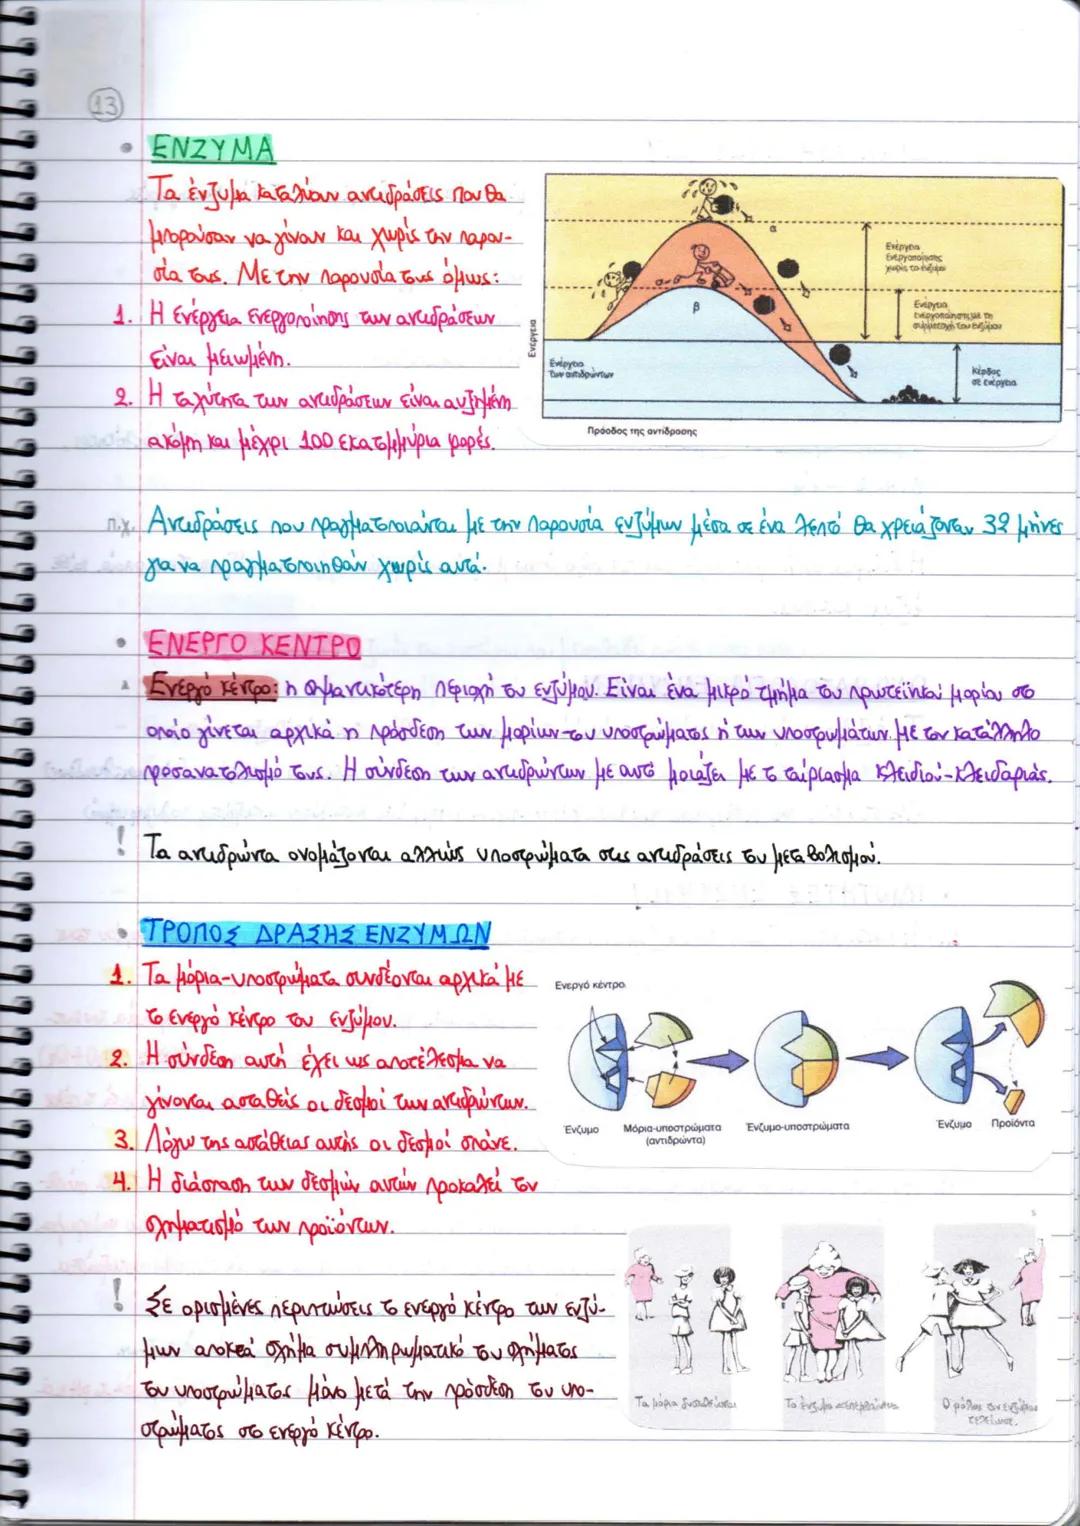 13
ΕΝΖΥΜΑ
Τα ένζυμα καταλύουν αντιδράσεις που θα
μπορούσαν να γίνουν και χωρίς την παρου-
σία τους. Με την παρουσία τους όμως:
1. Η ενέργεια ενεργοποίησης των αντιδράσεων
είναι μειωμένη.
2. Η ταχύτητα των αντιδράσεων είναι αυξημένη
ακόμη και μέχρι 100 εκατομμύρια φορές.
Ενέργεια
α
β
Ενέργεια
Ενεργοποίησης
χωρίς το ένζυμο
Ενέργεια
ενεργοποίησης με τη
συμμετοχή του ενζύμου
Ενέργεια
των αντιδρώντων
Κέρδος
σε ενέργεια
Πρόοδος της αντίδρασης
π.χ. Αντιδράσεις που πραγματοποιούνται με την παρουσία ενζύμων μέσα σε ένα λεπτό θα χρειάζονταν 32 μήνες
για να πραγματοποιηθούν χωρίς αυτά.
ΕΝΕΡΓΟ ΚΕΝΤΡΟ
Ενεργό κέντρο: η σημαντικότερη περιοχή του ενζύμου. Είναι ένα μικρό τμήμα του πρωτεϊνικού μορίου στο
οποίο γίνεται αρχικά η πρόσδεση των μορίων του υποστρώματος ή των υποστρωμάτων με τον κατάλληλο
προσανατολισμό τους. Η σύνδεση των αντιδρώντων με αυτό μοιάζει με το ταίριασμα κλειδιού-κλειδαριάς.
! Τα αντιδρώντα ονομάζονται αλλιώς υποστρώματα στις αντιδράσεις του μεταβολισμού.
ΤΡΟΠΟΣ ΔΡΑΣΗΣ ΕΝΖΥΜΩΝ
1. Τα μόρια-υποστρώματα συνδέονται αρχικά με
το ενεργό κέντρο του ενζύμου.
2. Η σύνδεση αυτή έχει ως αποτέλεσμα να
γίνονται ασταθείς οι δεσμοί των αντιδρώντων.
3. Λόγω της αστάθειας αυτής οι δεσμοί σπάνε.
4. Η διάσπαση των δεσμών αυτών προκαλεί τον
σχηματισμό των προϊόντων.
Ενεργό κέντρο
Ένζυμο
Μόρια-υποστρώματα
(αντιδρώντα)
Ένζυμο-υποστρώματα
Ένζυμο
Προϊόντα
! Σε ορισμένες περιπτώσεις το ενεργό κέντρο των ενζύ-
μων αποκτά σχήμα συμπληρωματικό του σχήματος
του υποστρώματος μόνο μετά την πρόσδεση του υπο-
στρώματος στο ενεργό κέντρο.
Τα μόρια
Το ένζυμο
Ο ρόλος του ενζύμου
τελείωσε.